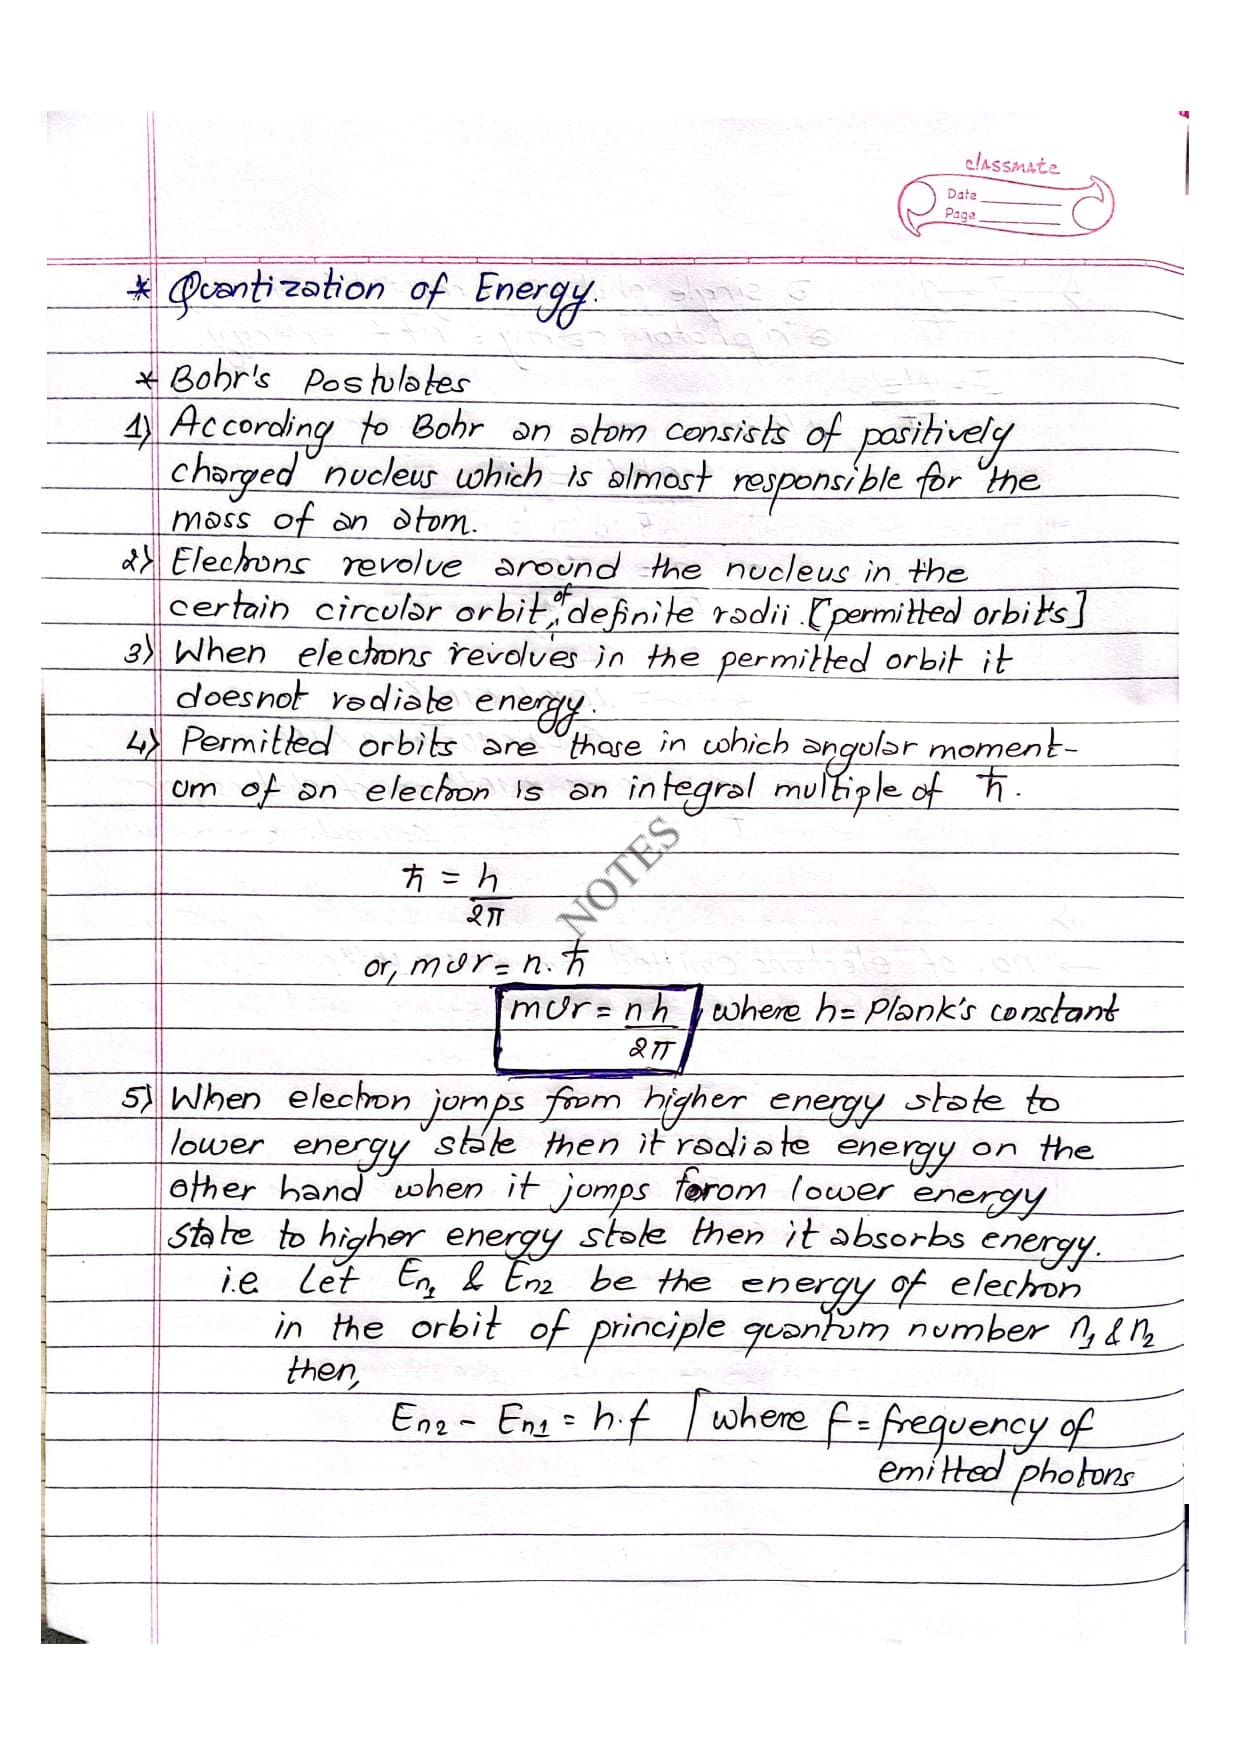 classmate
Date
Page
* Quantization of Energy.
* Bohr's Postulates
1) According to Bohr an atom consists of positively
charged nucleus which is almost responsible for the
mass of an atom.
2) Electrons revolve around the nucleus in the
certain circular orbit, of definite radii. [permitted orbit's]
3) When electrons revolves in the permitted orbit it
doesnot radiate energy.
4) Permitted orbits are those in which angular moment-
um of an electron is an integral multiple of ħ.
NOTES
ħ = h/2π
or, mvr = n.ħ
mvr = nh/2π, where h = Plank's constant
5) When electron jumps from higher energy state to
lower energy state then it radiate energy on the
other hand when it jumps forom lower energy
state to higher energy state then it absorbs energy.
i.e Let En1 & En2 be the energy of electron
in the orbit of principle quantum number n1 & n2
then,
En2 - En1 = h.f [where f = frequency of
emitted photons